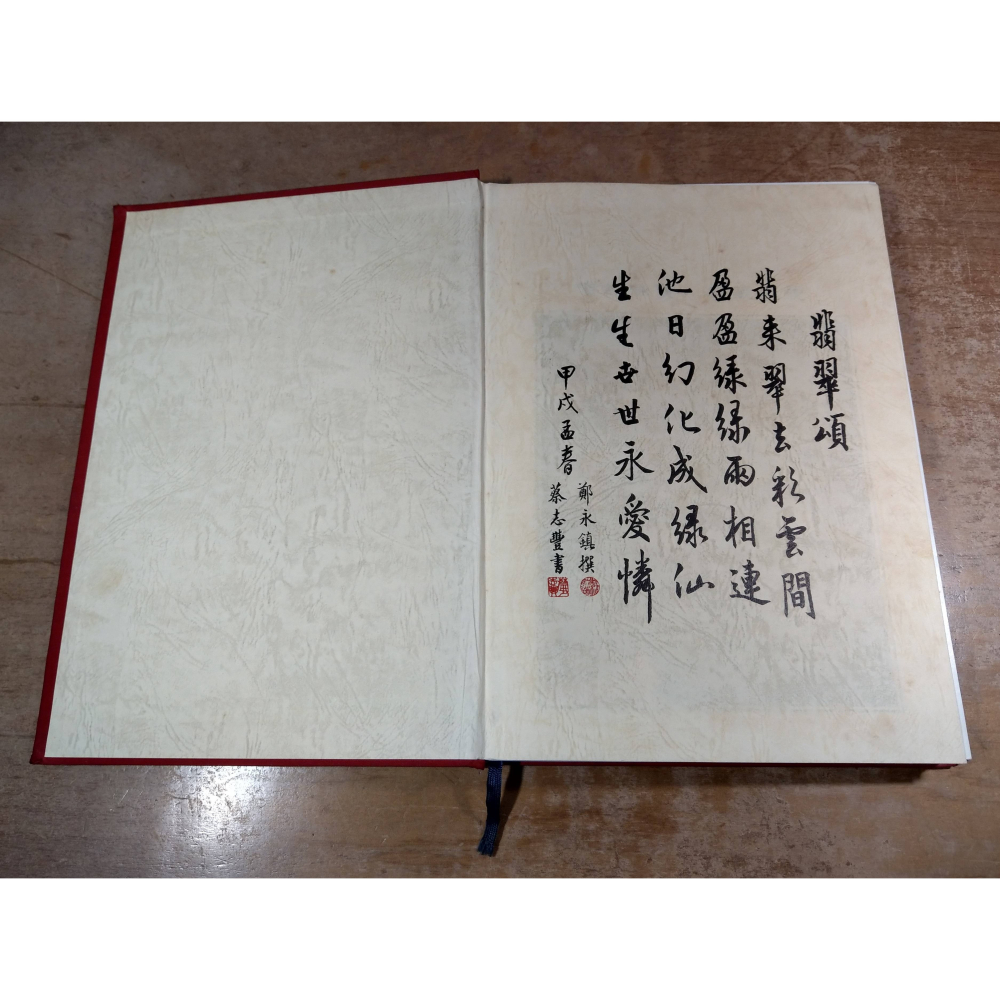 翡翠頌
翡来翠去彩雲間
盈盈綠綠兩相連
池日幻化成綠仙
生生世世永愛憐
甲戌孟春
鄭永鎮撰
蔡志豐書